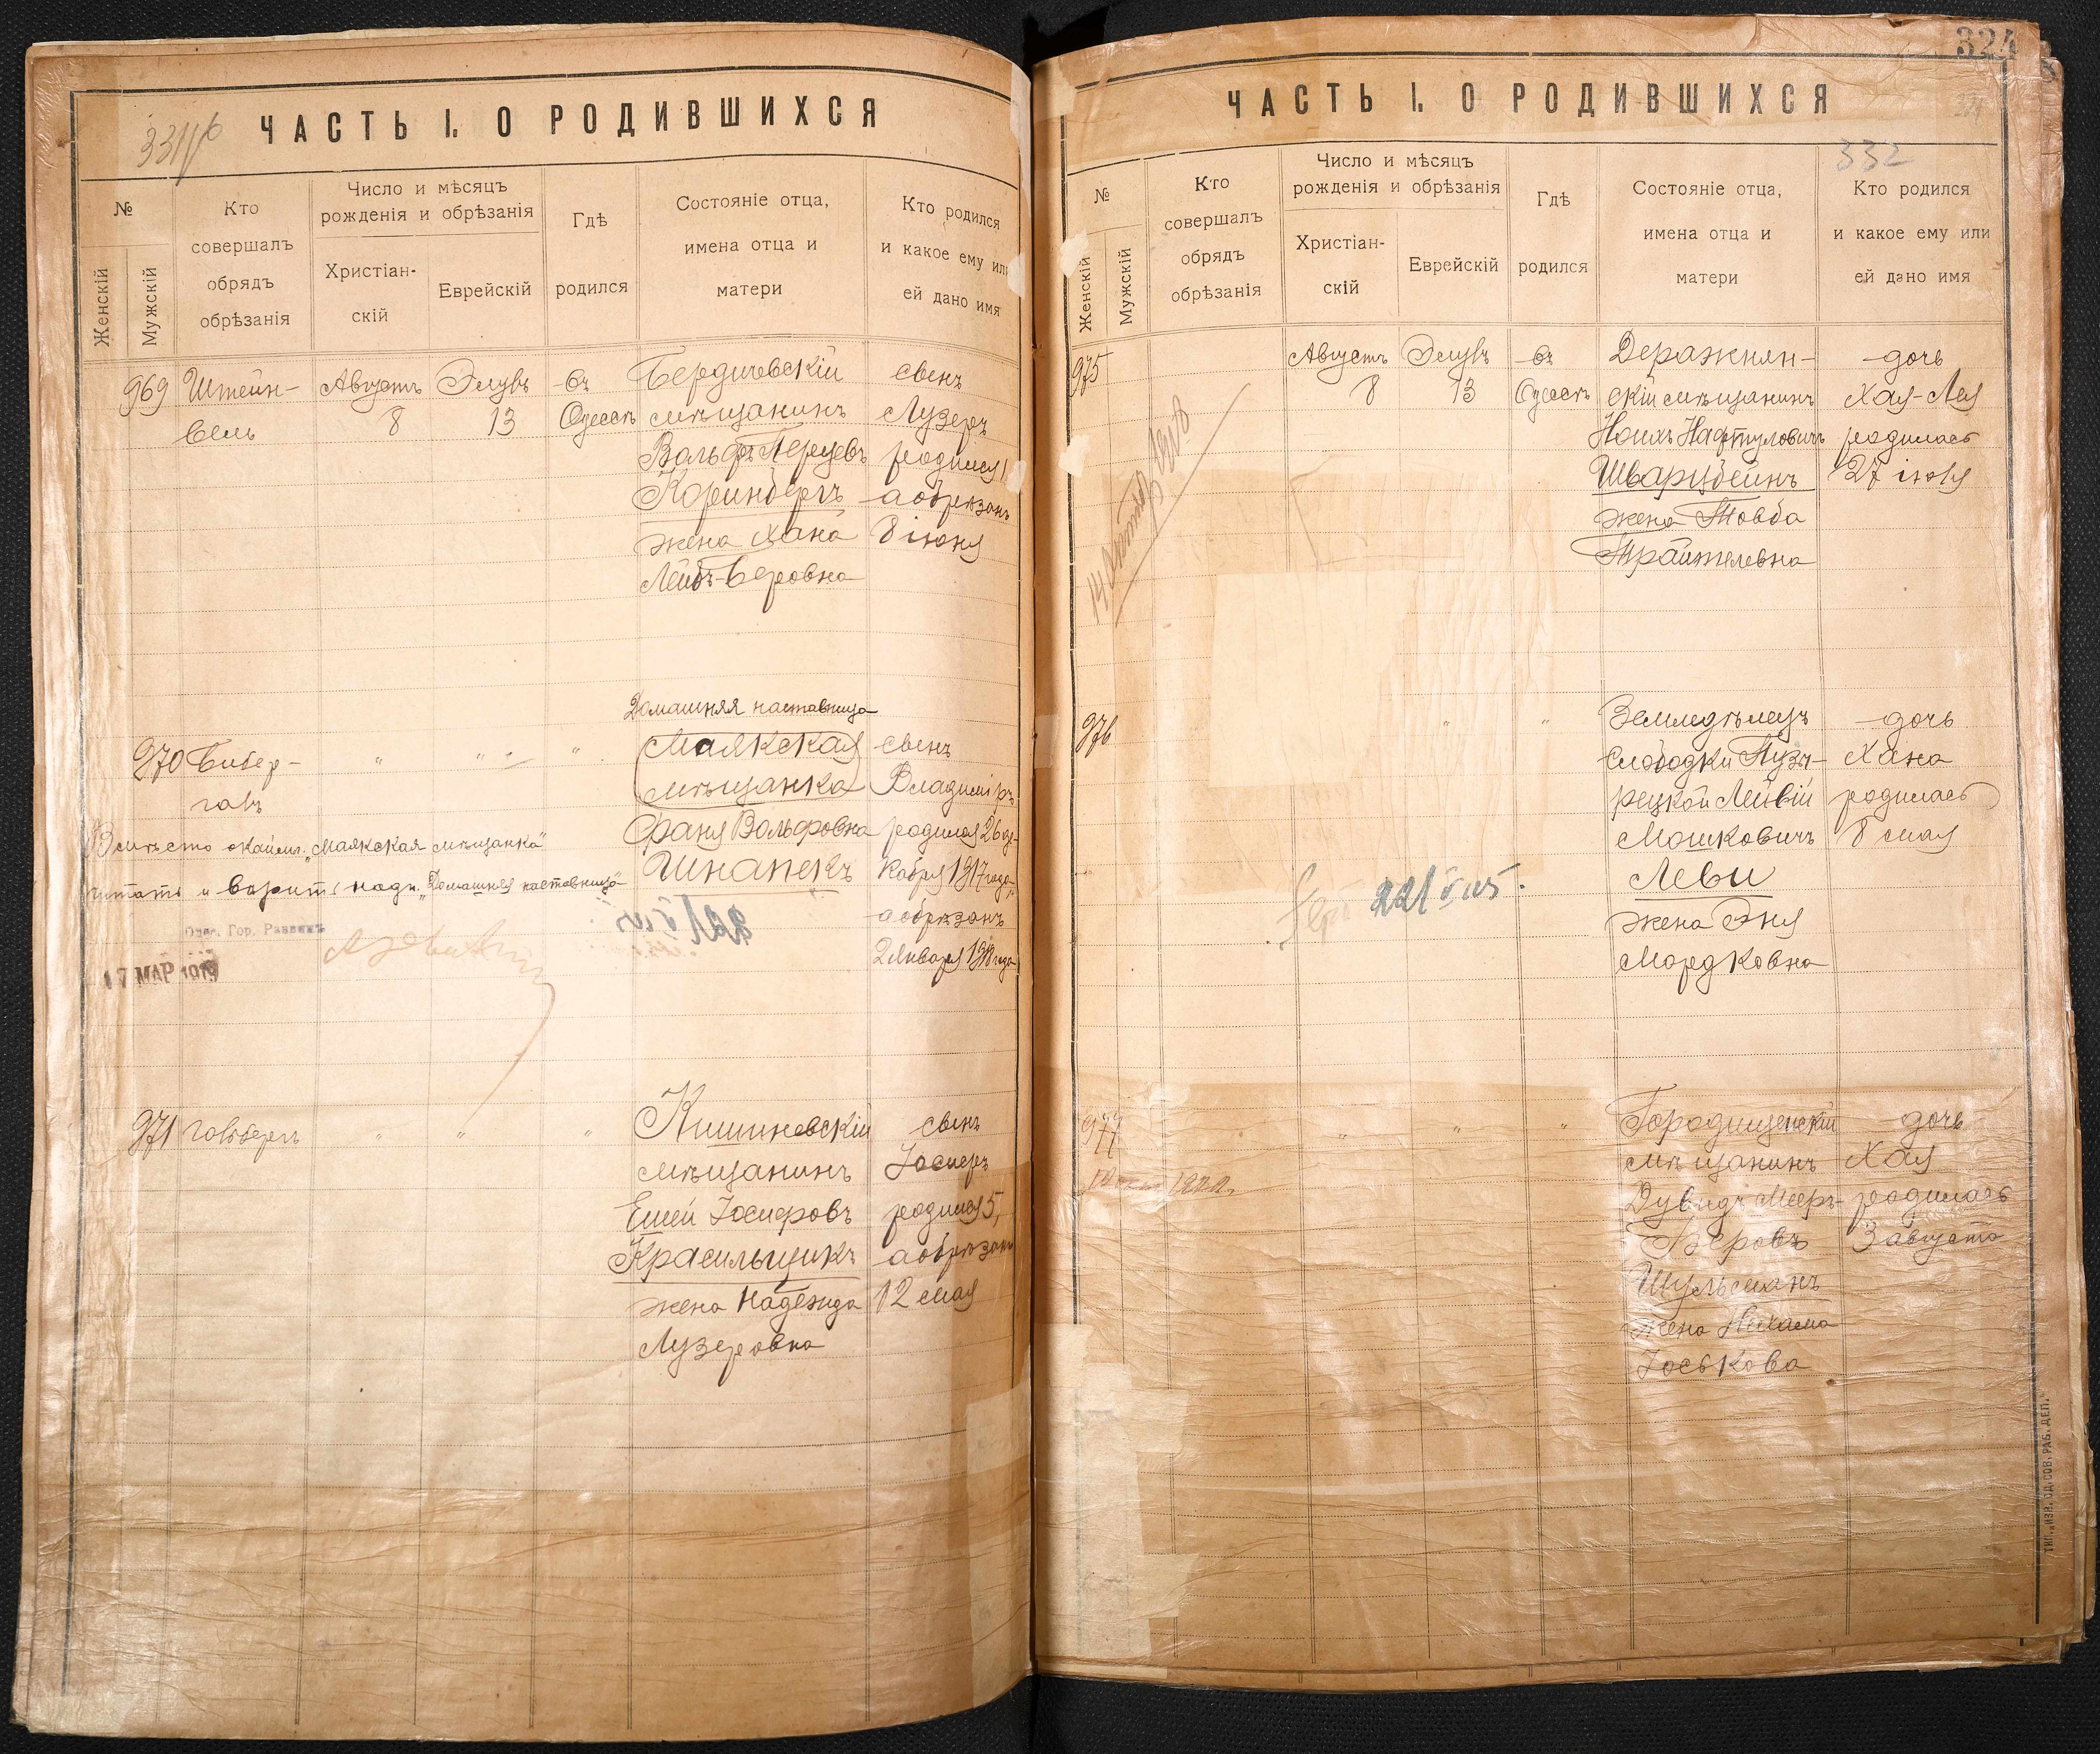 331
ЧАСТЬ I. О РОДИВШИХСЯ
№
Женскій
Мужскій
Кто
совершалъ
обрядъ
обрѣзанія
Число и мѣсяцъ
рожденія и обрѣзанія
Христіан-
скій
Еврейскій
Гдѣ
родился
Состояніе отца,
имена отца и
матери
Кто родился
и какое ему или
ей дано имя
969
Штейн-
бель
Августъ
8
Элулъ
13
въ
Одессѣ
Бердичевскій
мѣщанинъ
Вольфъ Перецевъ
Коринбергъ
жена Хана
Лейбъ-Беровна
сынъ
Лузеръ
родился
а обрѣзанъ
8 іюня
970
" " "
Домашняя наставница
Маякская
мѣщанка
Фаня Вольфовна
Шнапекъ
сынъ
Владиміръ
родился 26 де-
кабря 1917 года
а обрѣзанъ
2 Января 1918 года
Вмѣсто окайм. "Маякская мѣщанка"
читать и вѣрить надп. "Домашняя наставница"
Одес. Гор. Раввинъ
17 МАР 1919
971
Гольбергъ
" " "
Кишиневскій
мѣщанинъ
Еший Іосифовъ
Красильщикъ
жена Надежда
Лузеровна
сынъ
Іосифъ
родился 5,
а обрѣзанъ
12 мая
324
332
ЧАСТЬ I. О РОДИВШИХСЯ
№
Женскій
Мужскій
Кто
совершалъ
обрядъ
обрѣзанія
Число и мѣсяцъ
рожденія и обрѣзанія
Христіан-
скій
Еврейскій
Гдѣ
родился
Состояніе отца,
имена отца и
матери
Кто родился
и какое ему или
ей дано имя
975
Августъ
8
Элулъ
13
въ
Одессѣ
Деражнян-
скій мѣщанинъ
Ноихъ Нафтуловичъ
Шварцбейнъ
жена Товба
Трайтелевна
дочь
Хая-Лея
родилась
27 іюля
976
" "
Земледѣлецъ
слободки Пузы-
рецкой Лейвій
Мошковичъ
Леви
жена Эня
Мордковна
дочь
Хана
родилась
8 мая
977
" " "
Городищенскій
мѣщанинъ
Дувидъ Мееръ-
Беровъ
Шульманъ
жена Нихама
Іоськова
дочь
Хая
родилась
3 августа
ТИП. „ИЗВ. ОД. СОВ. РАБ. ДЕП."